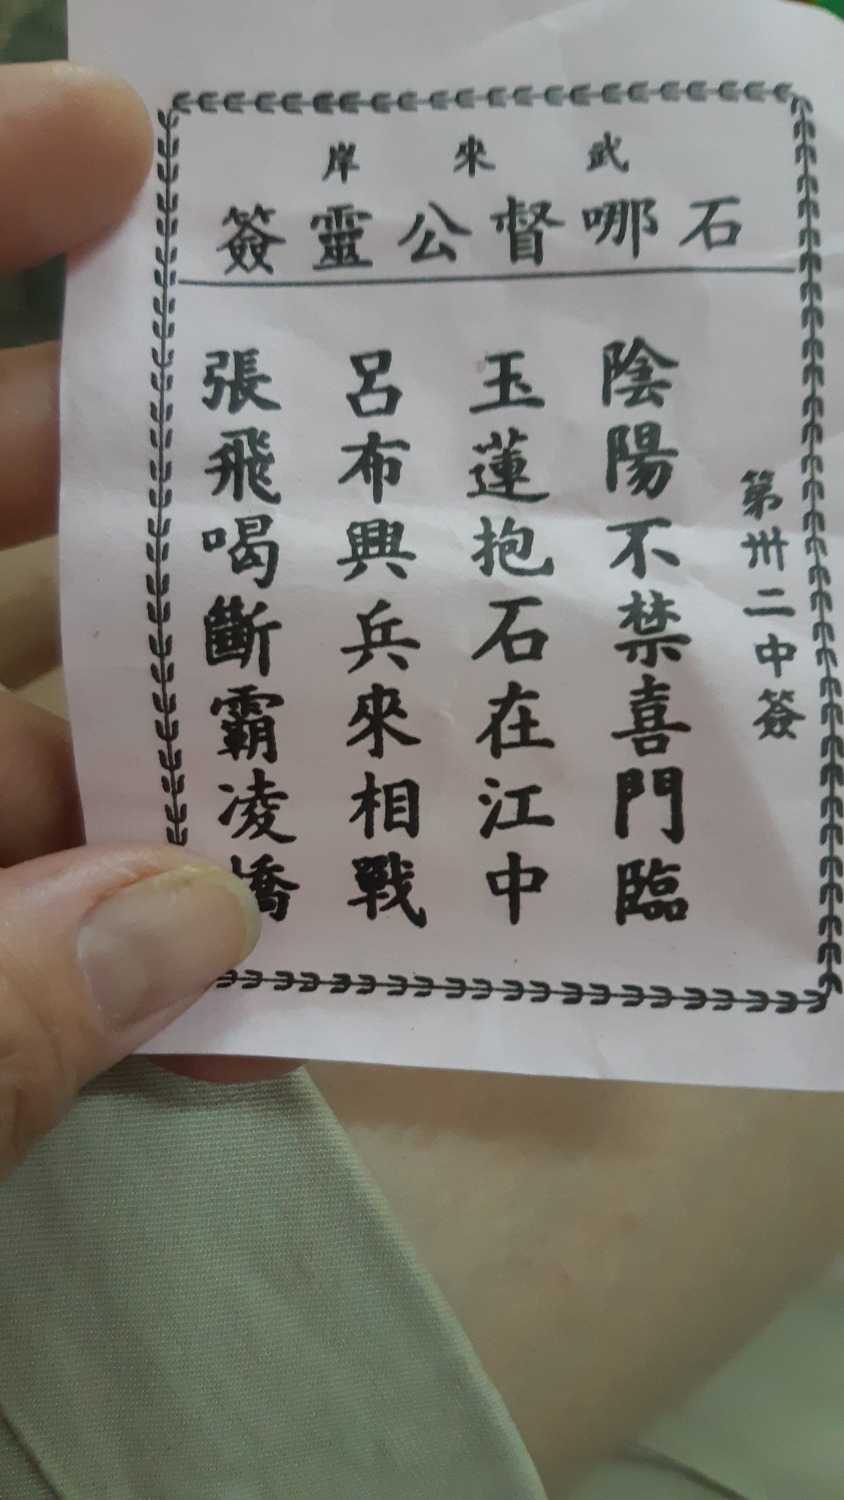 武來岸
石哪督公靈簽
第卅二中簽
陰陽不禁喜門臨
玉蓮抱石在江中
呂布興兵來相戰
張飛喝斷霸凌橋